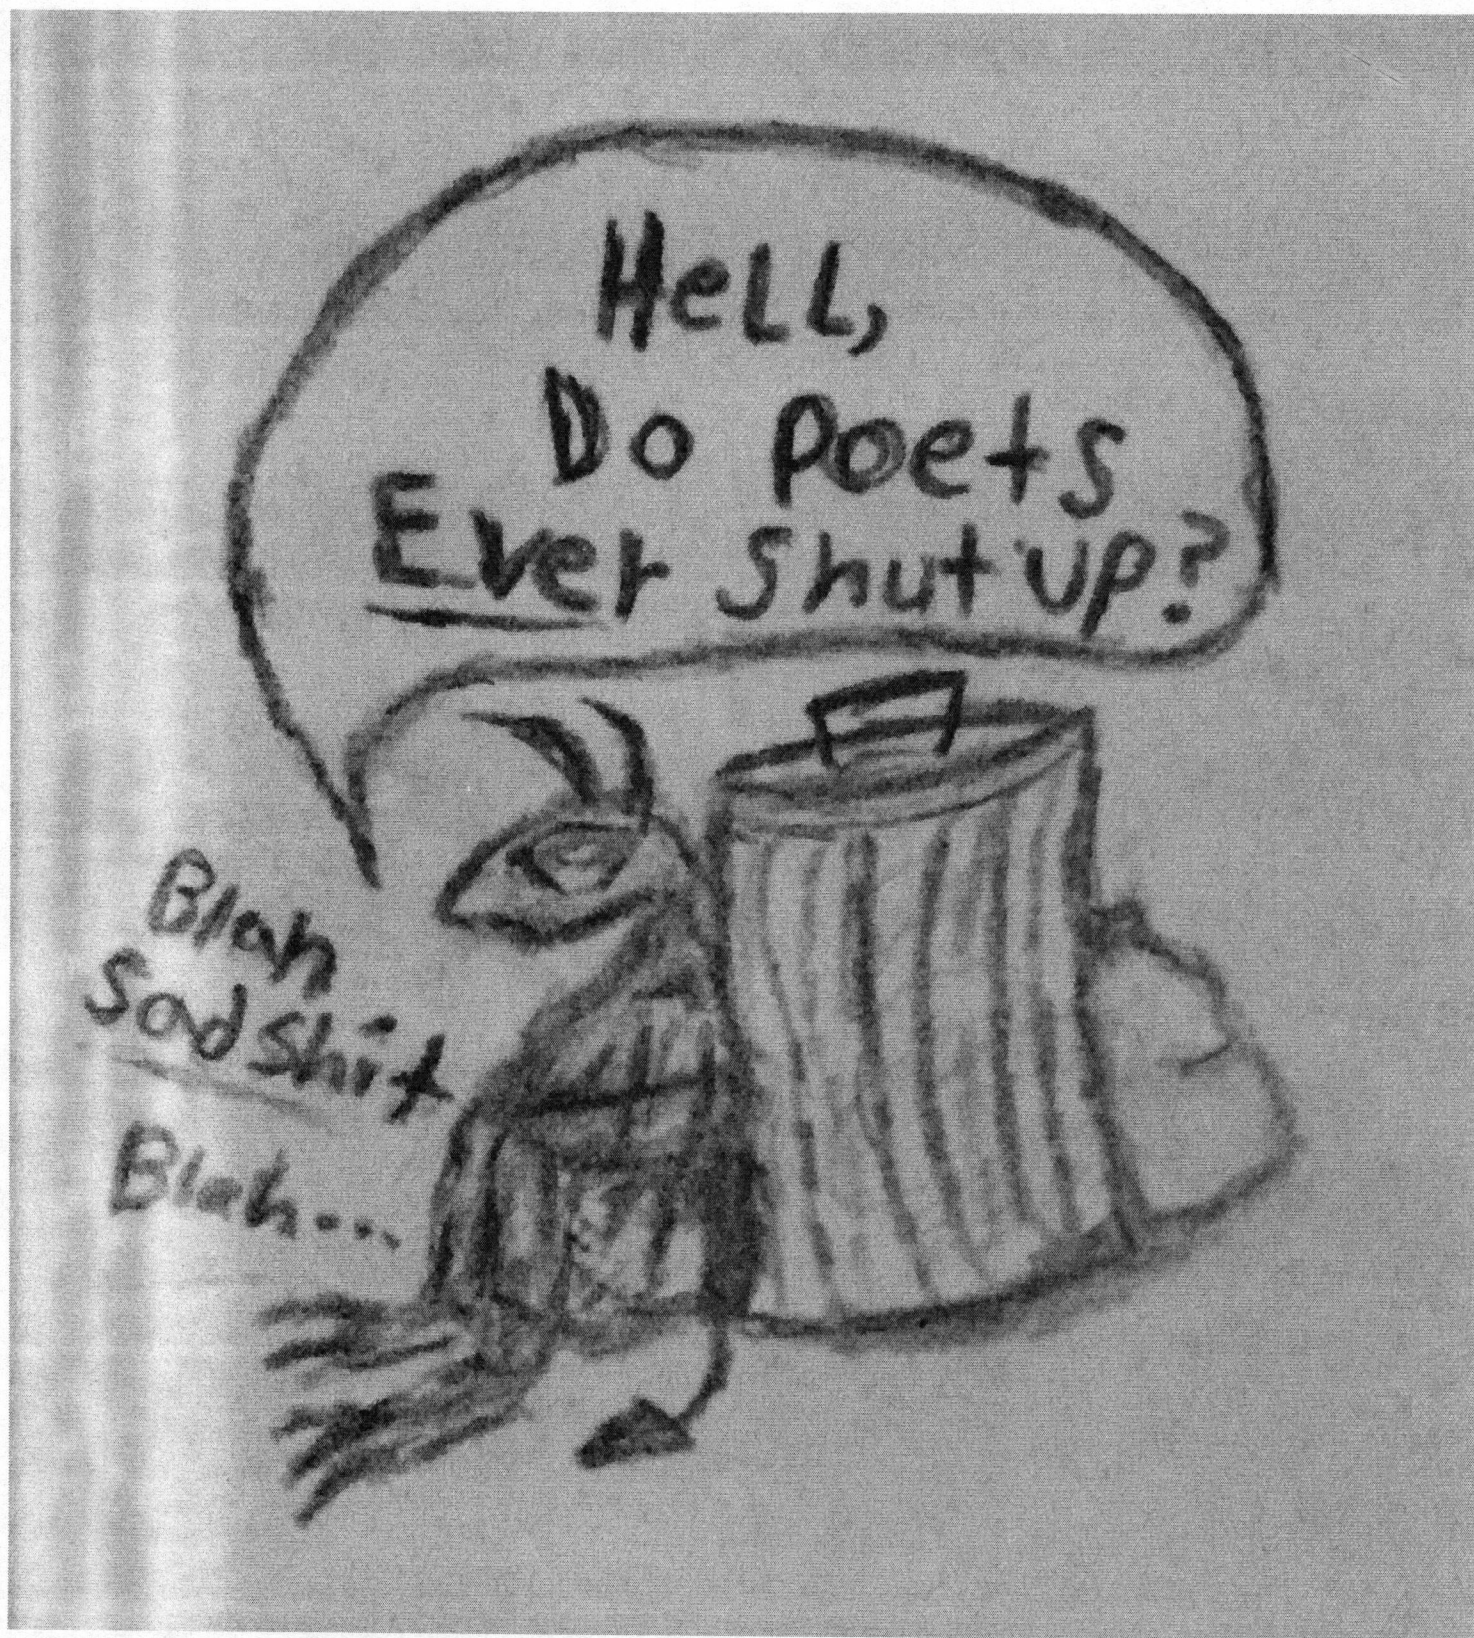 HeLL,
Do poets
Ever Shut up?
Blah
Sad Shit
Blah...